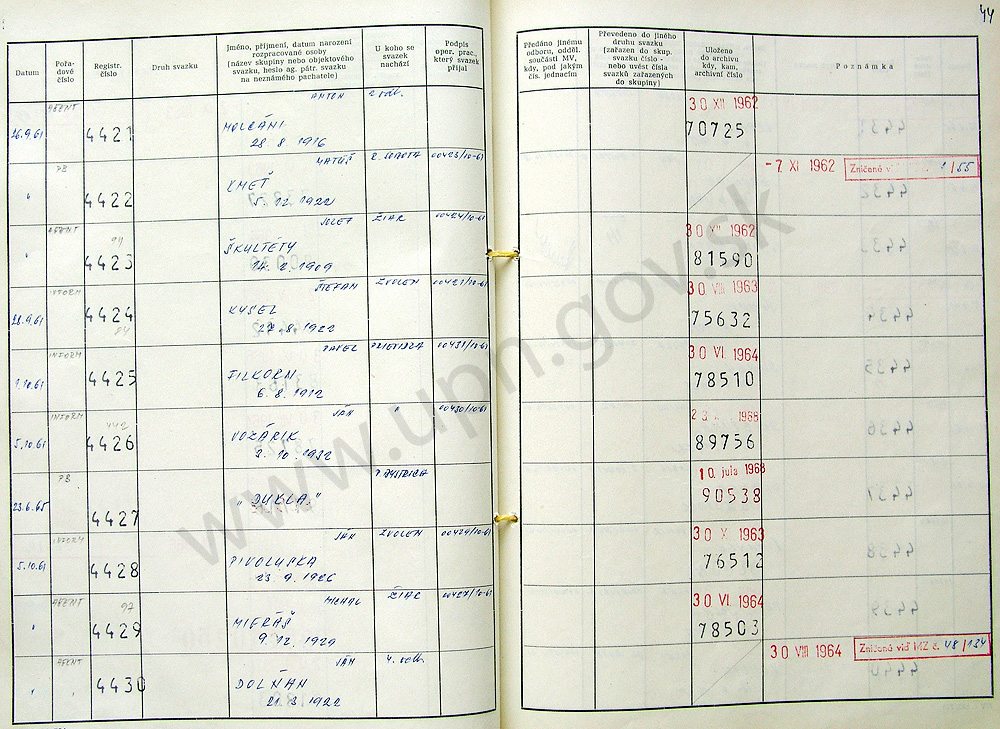 44
Datum
Pořa-
dové
číslo
Registr.
číslo
Druh svazku
Jméno, příjmení, datum narození
rozpracované osoby
(název skupiny nebo objektového
svazku, heslo ag. pátr. svazku
na neznámého pachatele)
U koho se
svazek
nachází
Podpis
oper. prac.,
který svazek
přijal
Předáno jinému
odboru, odděl.
součásti MV,
kdy, pod jakým
čís. jednacím
Převedeno do jiného
druhu svazku
(zařazen do skup.
svazku číslo -
nebo uvést čísla
svazků zařazených
do skupiny)
Uloženo
do archivu
kdy, kam,
archivní číslo
Poznámka
AGENT ANTON 2. odb. 30 XII 1962
26.9.61 4421 MOLČÁNI 70725
28 8 1916
PB MATÚŠ 00423/10-61 -7. XI 1962 Zničené viď 1/55
" 4422 KMEŤ
5. 12. 1922
AGENT JOZEF ŽIAR 00424/10-61 30 XII 1962
94
" 4423 ŠKULTÉTY 81590
14. 2. 1909
INFORM ŠTEFAN ZVOLEN 00421/10-61 30 VIII 1963
28.9.61 4424 KYSEL 75632
84 27. 8. 1922
INFORM PAVEL PRIEVIDZA 00431/10-61 30 VI. 1964
4425 FILKORN 78510
6. 8. 1912
INFORM JÁN " 00430/10-61 1968
442
5.10.61 4426 VOZÁRIK 89756
2. 10. 1932
PB B. BYSTRICA 10. júla 1968
23.6.65 4427 „DUKLA" 90538
INFORM JÁN ZVOLEN 00429/10-61 30 X 1963
5.10.61 4428 PIVOLUSKA 76512
23 9. 1926
AGENT MICHAL ŽIAR 00427/10-61 30 VI. 1964
97
" 4429 MIERÁŠ 78503
9 12. 1929
AGENT JÁN 4. odb. 30 VIII 1964 Zničené viď MZ č. 48/134
" " 4430 DOLŇAN
21. 3. 1922
www.upn.gov.sk